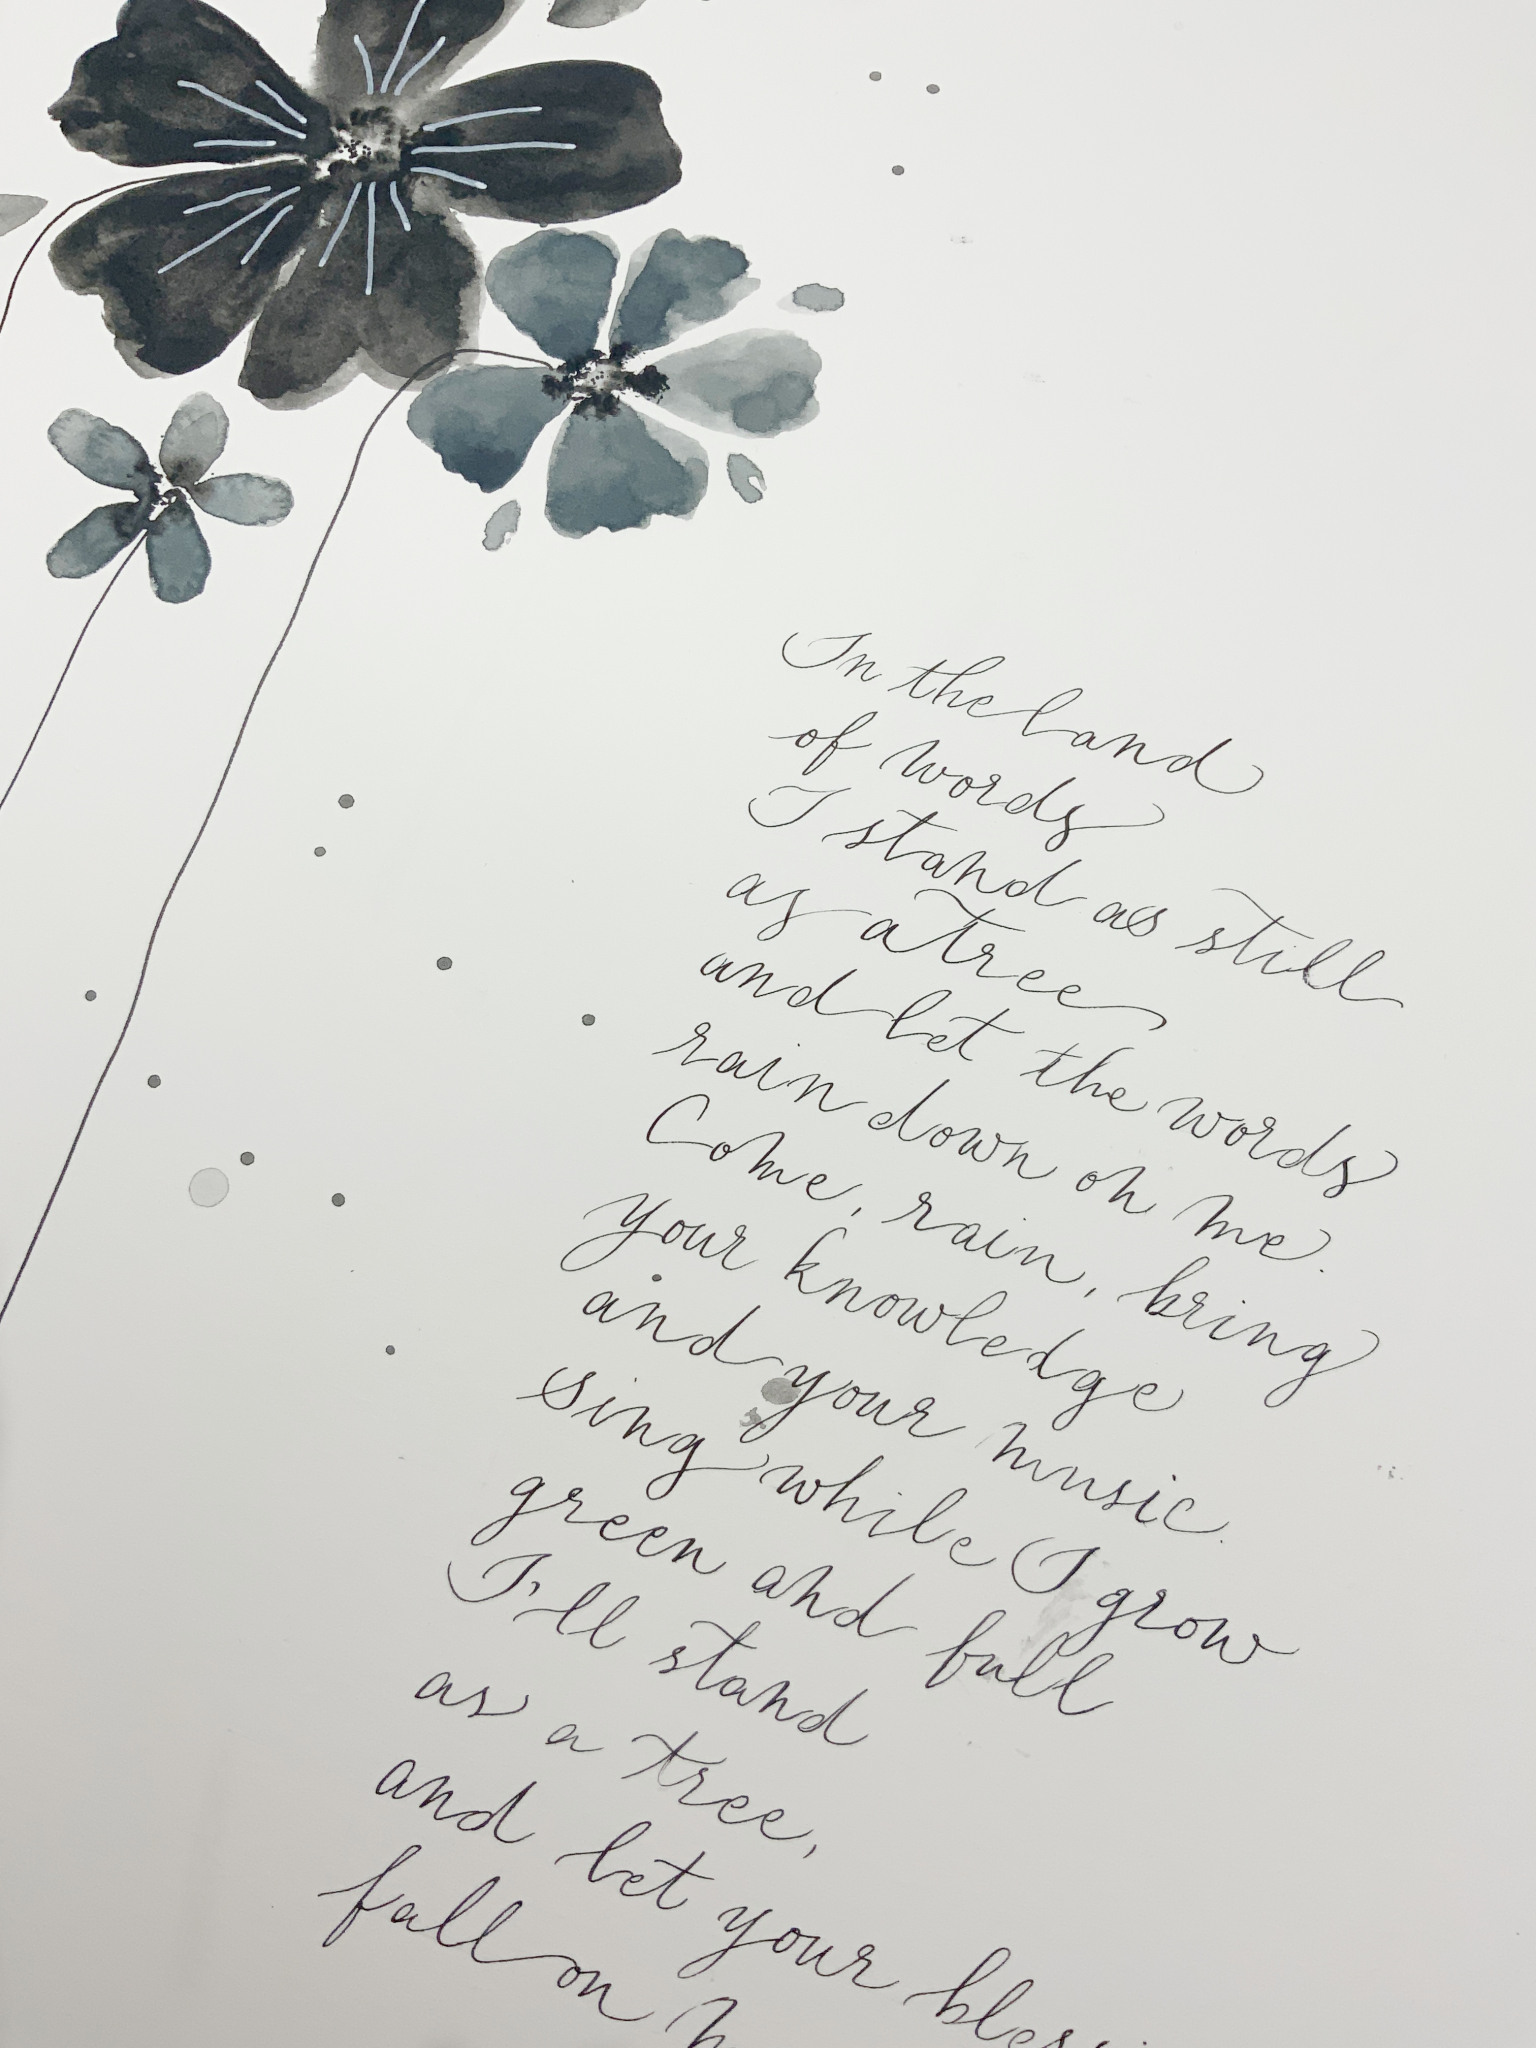 In the land
of words
I stand as still
as a tree
and let the words
rain down on me.
Come, rain, bring
your knowledge
and your music.
sing while I grow
green and full
I'll stand
as a tree,
and let your
fall on